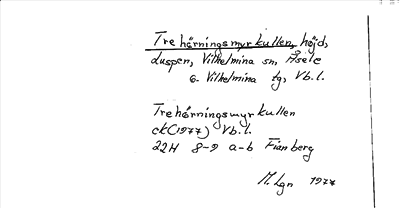 Trehörningsmyrkullen, höjd,
Luspen, Vilhelmina sn, Åsele
o. Vilhelmina tg, Vb.l.
Trehörningsmyrkullen
ek (1977) Vb.l.
22H 8-9 a-b Fianberg
M. Lgn 1977